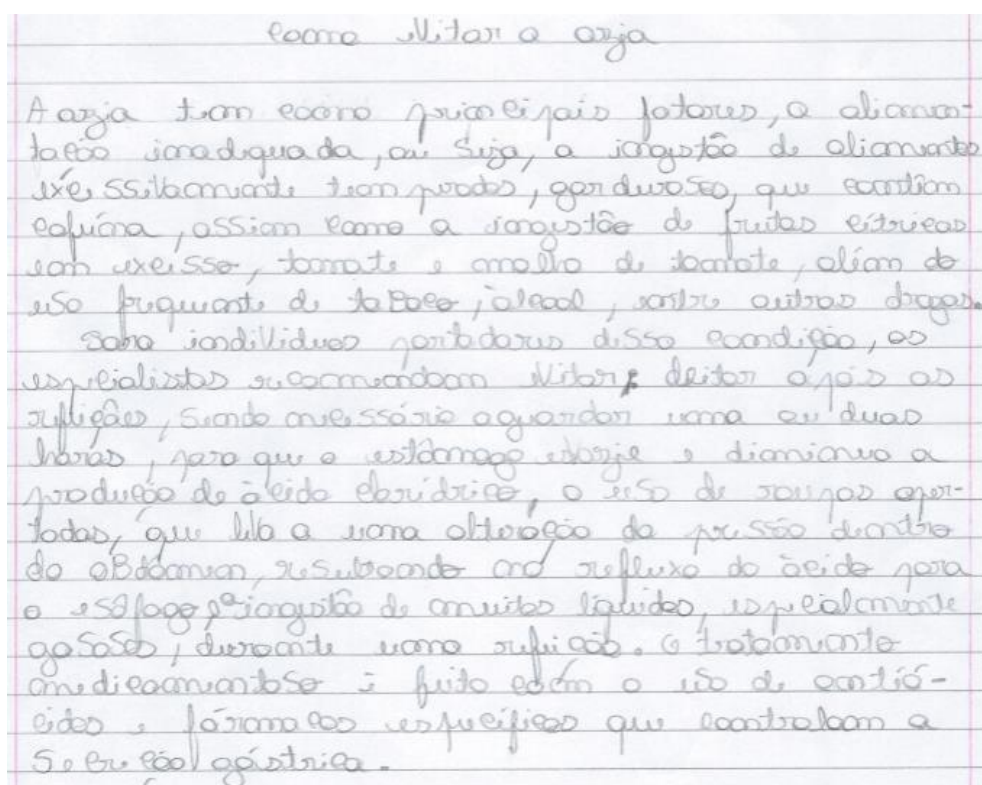 Como evitar a azia
A azia tem como principais fatores, a alimen-
tação inadequada, ou seja, a ingestão de alimentos
excessivamente temperados, gordurosos, que contém
cafeína, assim como a ingestão de frutas cítricas
em excesso, tomate e molho de tomate, além do
uso frequente de tabaco, álcool, entre outras drogas.
Para indivíduos portadores dessa condição, os
especialistas recomendam evitar deitar após as
refeições, sendo necessário aguardar uma ou duas
horas, para que o estômago esvazie e diminua a
produção de ácido clorídrico, o uso de roupas aper-
tadas, que leva a uma alteração da pressão dentro
do abdômen, resultando no refluxo do ácido para
o esôfago e a ingestão de muitos líquidos, especialmente
gasosos, durante uma refeição. O tratamento
medicamentoso é feito com o uso de antiá-
cidos e fármacos específicos que controlam a
secreção gástrica.